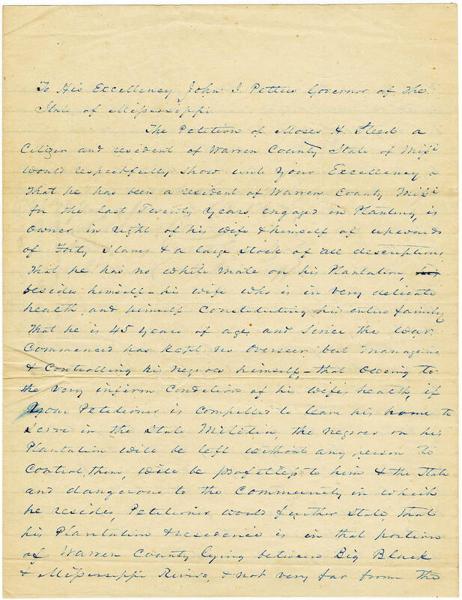 To His Excellency John J. Pettus Governor of the
State of Mississippi
The Petition of Moses H. a
Citizen and resident of Warren County State of Missi
would respectfully show unto Your Excellency
that he has been a resident of Warren County Missi
for the last Twenty Years, engaged in Planting, is
owner in right of his wife & himself of upwards
of Forty Slaves & a large Stock of all descriptions
That he has no white male on his Plantation,
besides himself - his wife who is in very delicate
health, and himself Constituting his entire family
That he is 45 years of age, and Since the War
Commenced has Kept no Overseer but managing
& Controlling his negroes himself - that Owing to
the very infirm Condition of his wifes health, if
Your Petitioner is compelled to leave his home to
Serve in the State Militia, the negroes on his
Plantation will be left without any person to
Control them, will be profitless to him & the State
and dangerous to the Community in which
he resides, Petitioner would further State, that
his Plantation & residence is in that portion
of Warren County lying between Big Black
& Mississippi Rivers, & not very far from the